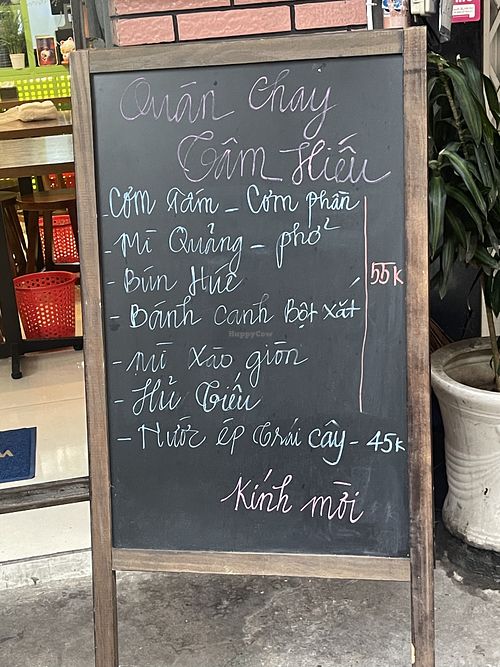 Quán chay
Tâm Hiếu
- Cơm Tấm - Cơm phần
- Mì Quảng - phở
- Bún Huế
- Bánh canh Bột xắt
- Mì xào giòn
- Hủ Tiếu
55K
- Nước ép trái cây - 45K
Kính mời
HappyCow